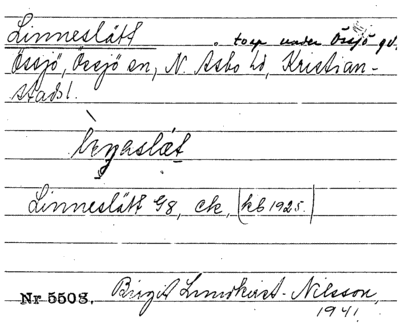 Linneslätt . torp under Össjö gd.
Össjö, Össjö sn, N. Åsbo hd, Kristian-
stads l.
Linneslätt G8, ek, (kb 1925.)
Nr 5503. Birgit Lundkvist-Nilsson,
1941